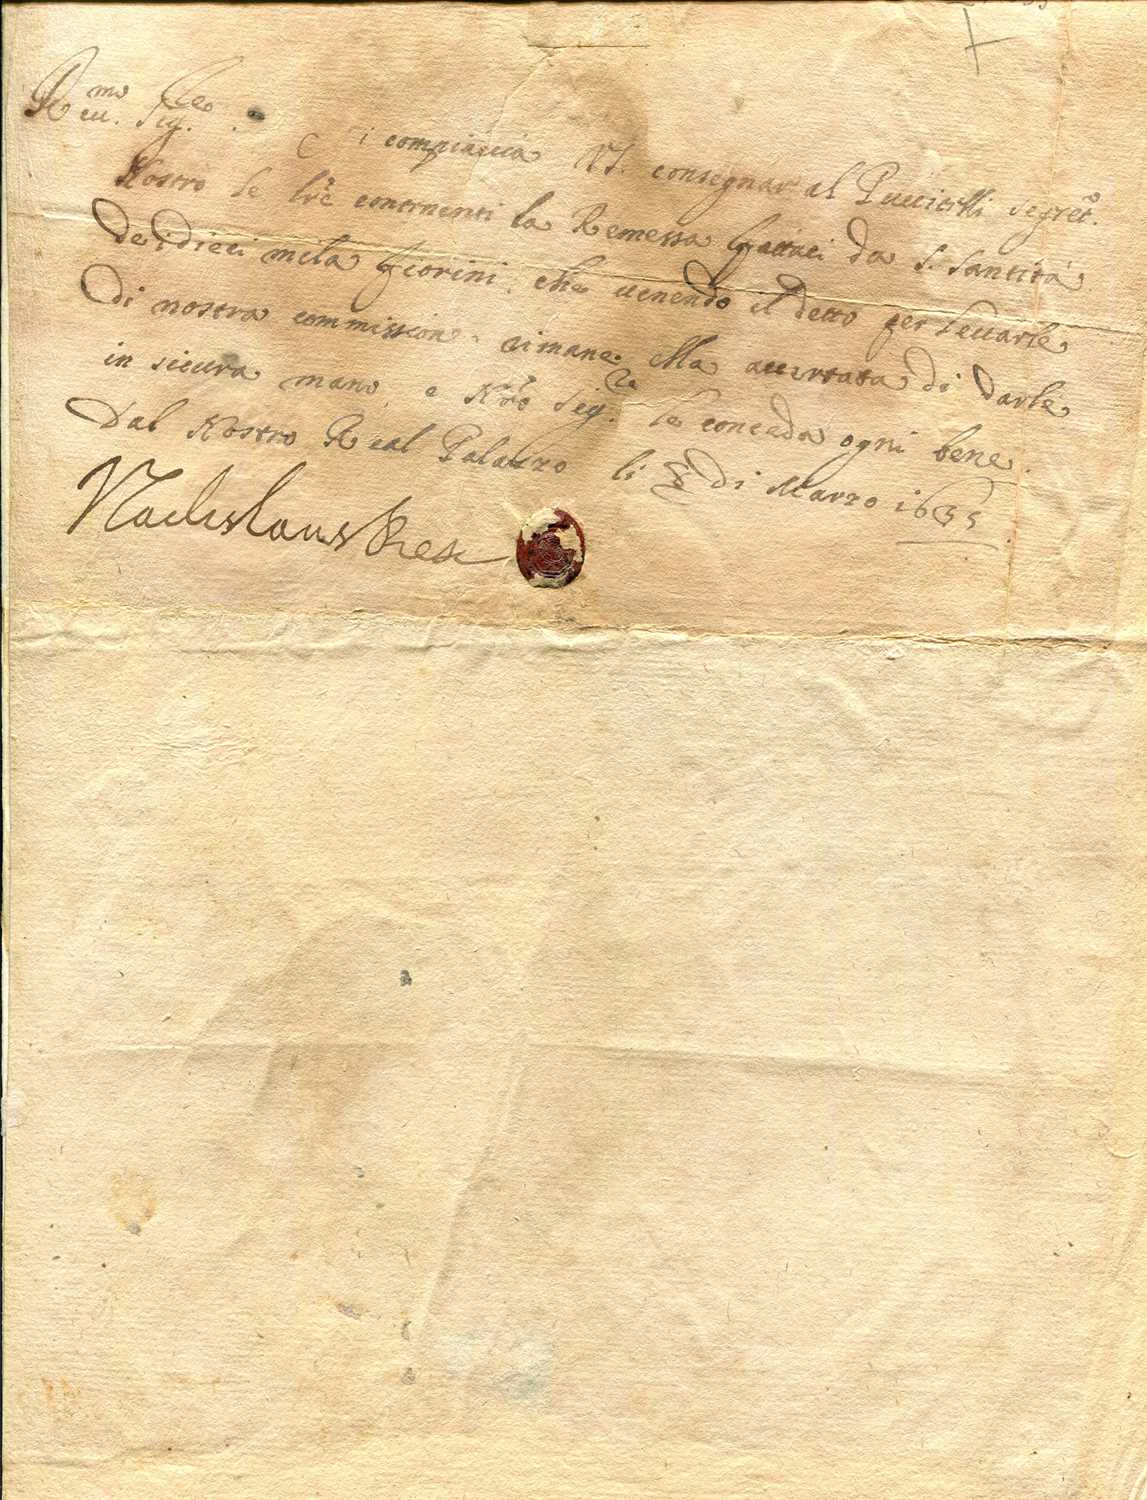 Reu.mo Sig.re
Si compiaccia VS. consegnar al Puccitelli Segret.o
Nostro le lr̃e continenti la Remessa fattaci da S. Santità
dei dieci mila fiorini, che uenendo il detto per leuarle
di nostra commission, rimane ella accertata di darle
in sicura mano, e N'ro Sig.re le conceda ogni bene.
Dal Nostro Real Palazzo li 8 di Marzo 1635
Vladislaus Rex